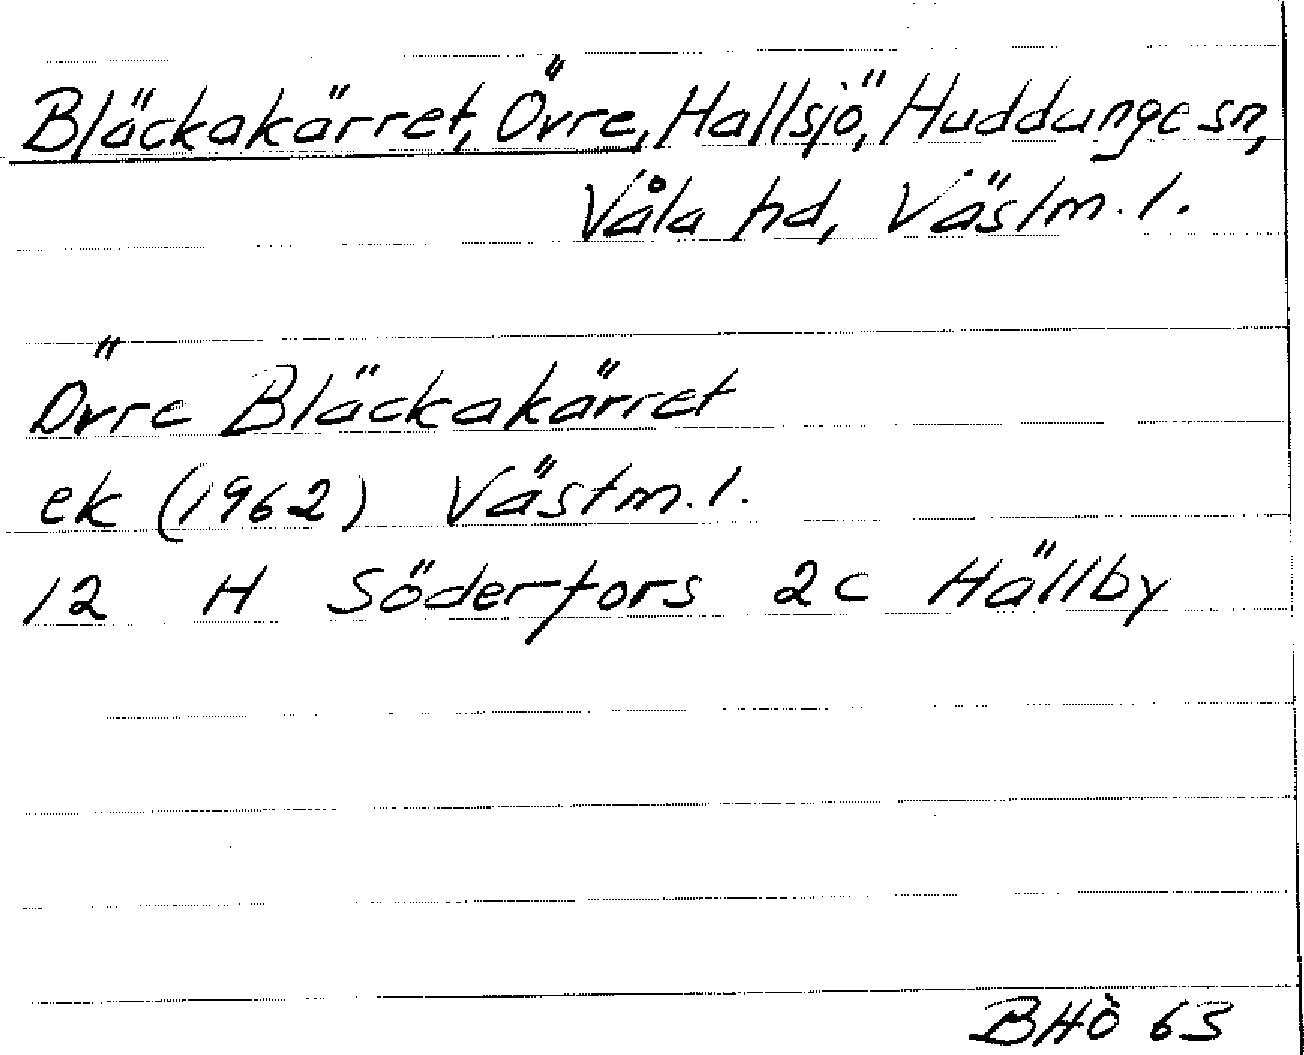 Bläckakärret, Övre, Hallsjö, Huddunge sn,
Våla hd, Västm. l.
Övre Bläckakärret
ek (1962) Västm. l.
12 H Söderfors 2c Hällby
BHÖ 63